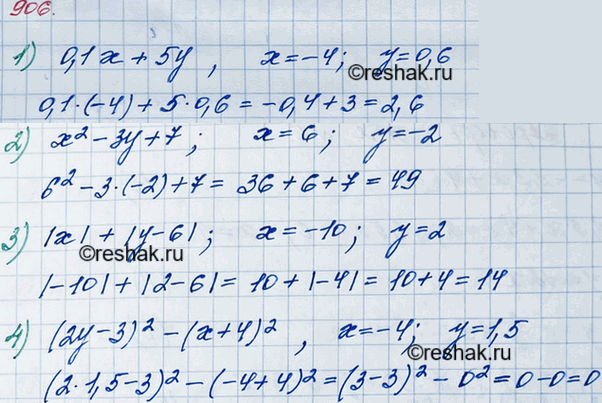 906.
1) 0,1x + 5y , x = -4; y = 0,6
©reshak.ru
0,1·(-4) + 5·0,6 = -0,4 + 3 = 2,6
2) x² - 3y + 7; x = 6; y = -2
6² - 3·(-2) + 7 = 36 + 6 + 7 = 49
3) |x| + |y-6|; x = -10; y = 2
©reshak.ru
|-10| + |2-6| = 10 + |-4| = 10 + 4 = 14
4) (2y-3)² - (x+4)² , x = -4; y = 1,5
©reshak.ru
(2·1,5-3)² - (-4+4)² = (3-3)² - 0² = 0 - 0 = 0